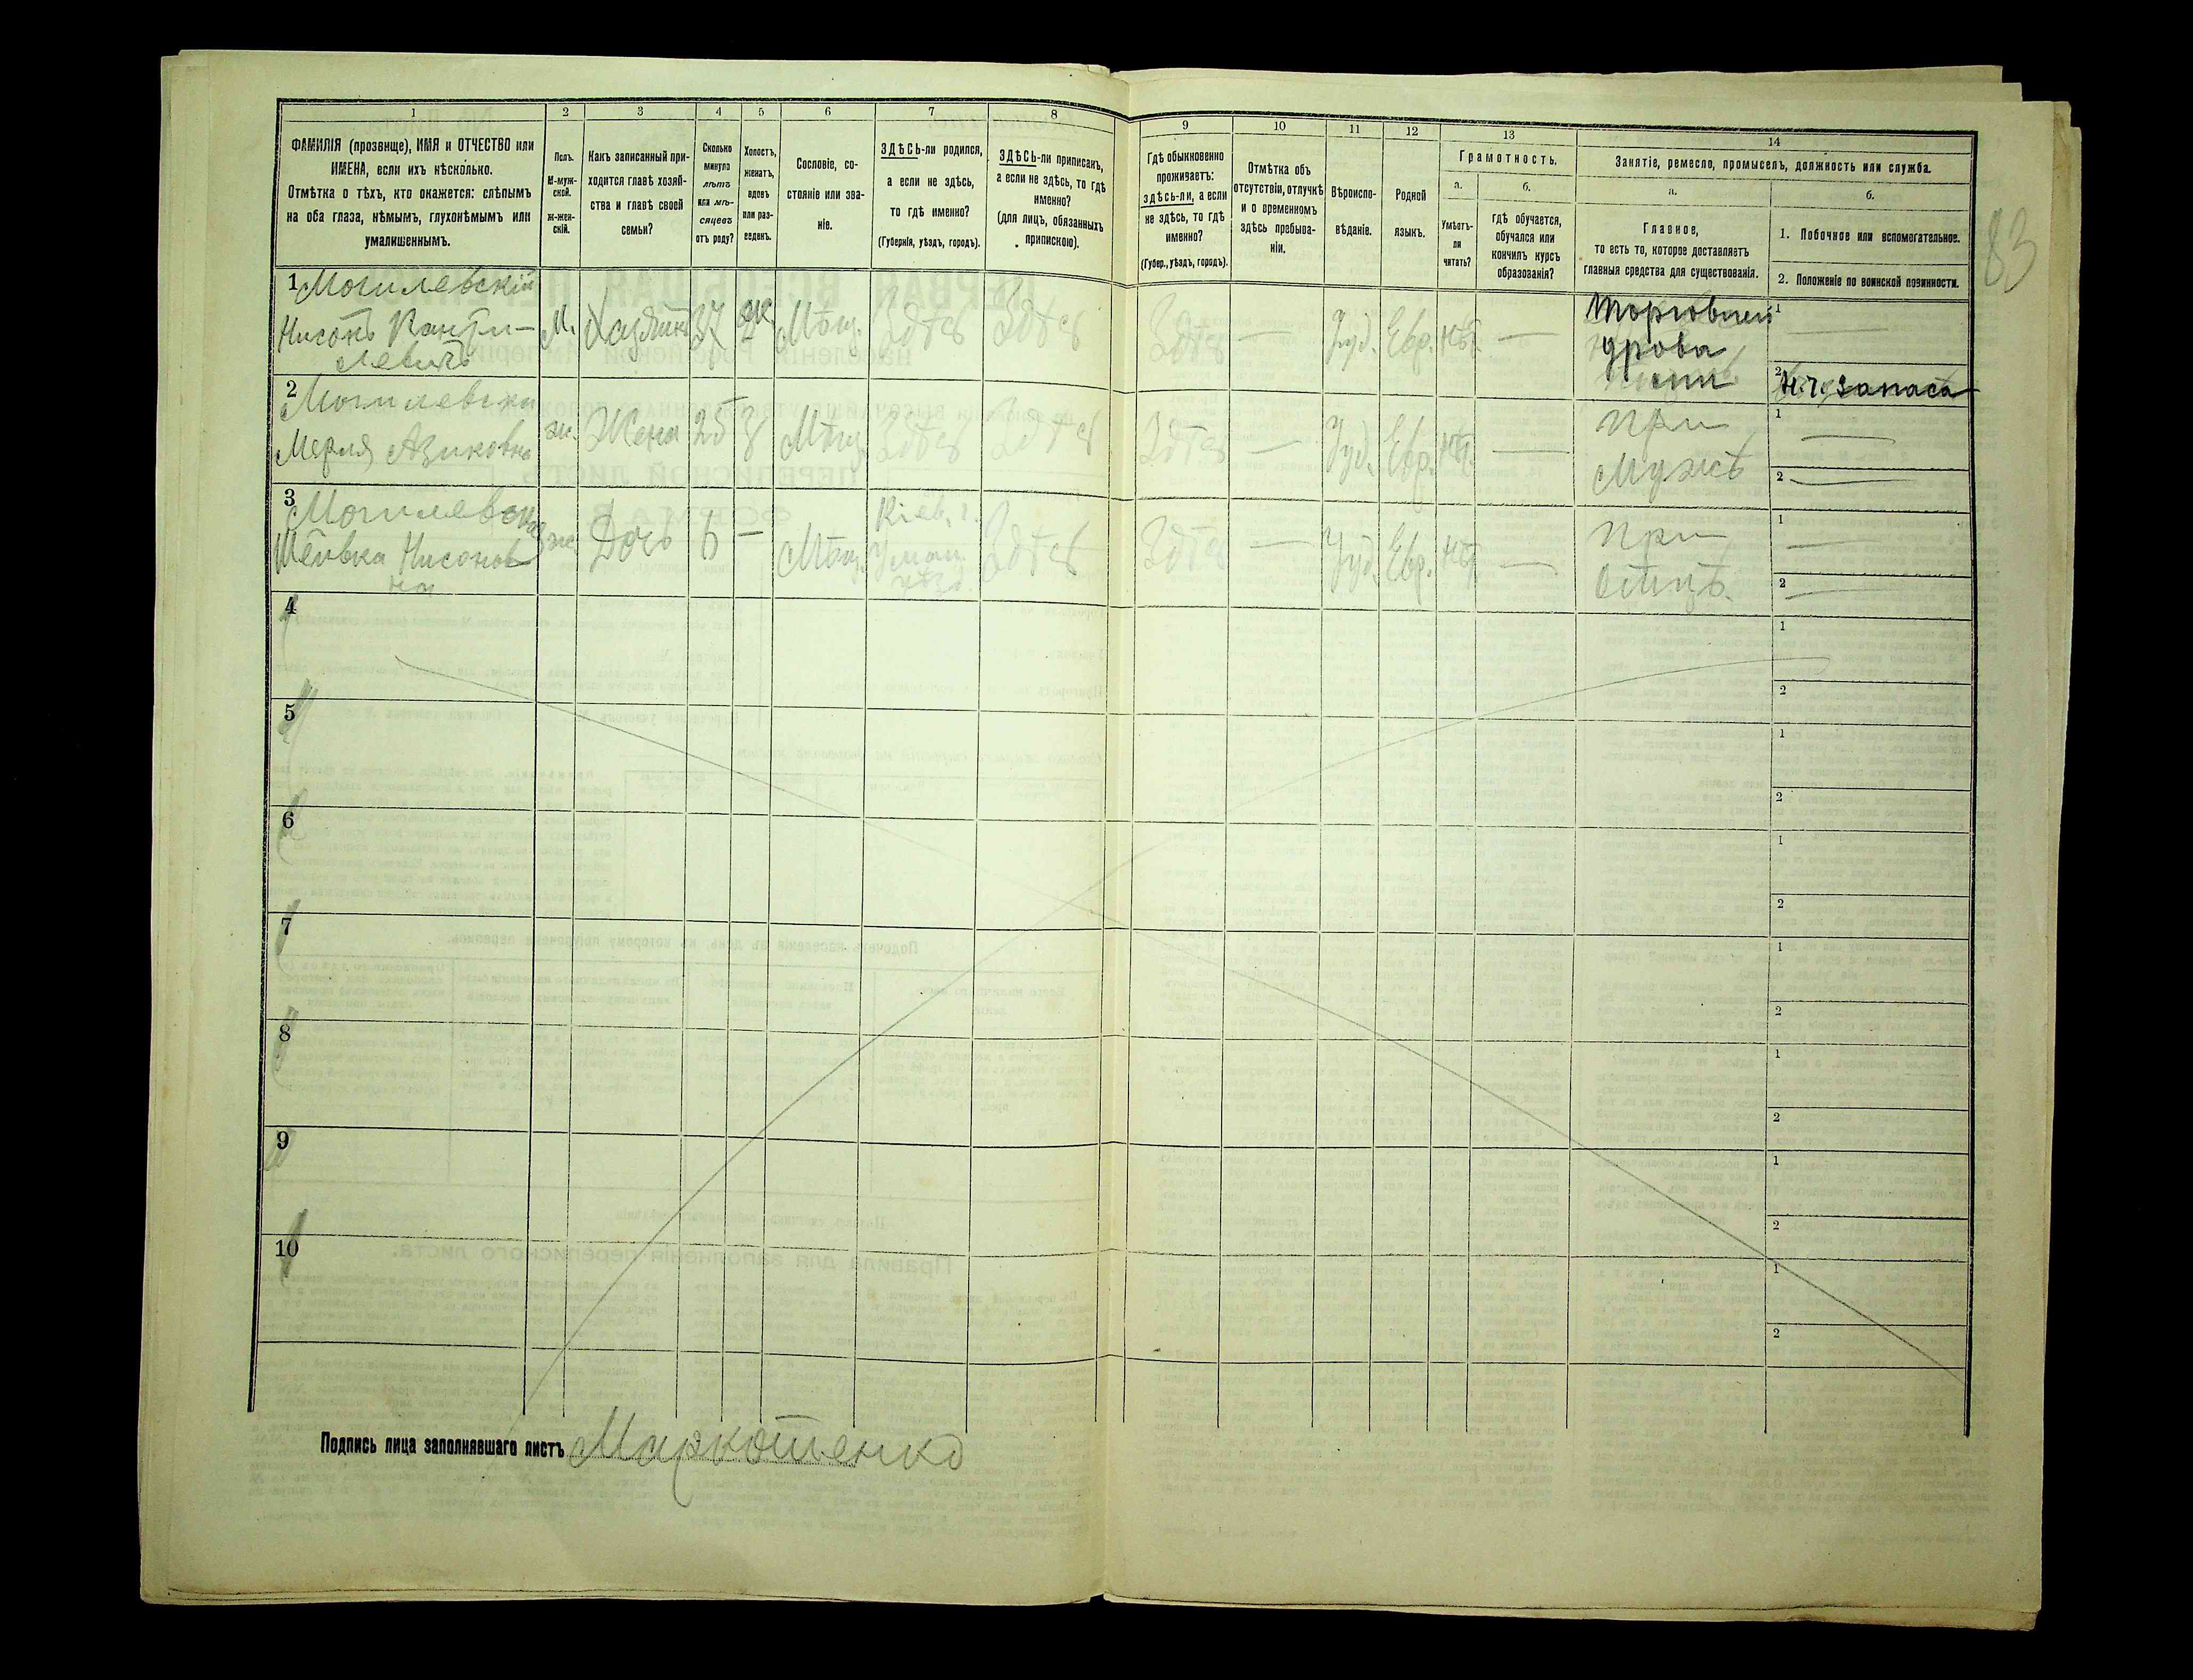 1
2
3
4
5
6
7
8
9
10
11
12
13
14
ФАМИЛІЯ (прозвище), ИМЯ и ОТЧЕСТВО или
ИМЕНА, если ихъ нѣсколько.
Отмѣтка о тѣхъ, кто окажется: слѣпымъ
на оба глаза, нѣмымъ, глухонѣмымъ или
умалишеннымъ.
Полъ.
М-муж-
ской.
Ж-жен-
скій.
Какъ записанный при-
ходится главѣ хозяй-
ства и главѣ своей
семьи?
Сколько
минуло
лѣтъ
или мѣ-
сяцевъ
отъ роду?
Холостъ,
женатъ,
вдовъ
или раз-
веденъ.
Сословіе, со-
стояніе или зва-
ніе.
ЗДѢСЬ-ли родился,
а если не здѣсь,
то гдѣ именно?
(Губернія, уѣздъ, городъ).
ЗДѢСЬ-ли приписанъ,
а если не здѣсь, то гдѣ
именно?
(для лицъ, обязанныхъ
припискою).
Гдѣ обыкновенно
проживаетъ:
здѣсь-ли, а если
не здѣсь, то гдѣ
именно?
(Губер., уѣздъ, городъ).
Отмѣтка объ
отсутствіи, отлучкѣ
и о временномъ
здѣсь пребыва-
ніи.
Вѣроиспо-
вѣданіе.
Родной
языкъ.
Грамотность.
а.
Умѣетъ-
ли
читать?
б.
гдѣ обучается,
обучался или
кончилъ курсъ
образованія?
Занятіе, ремесло, промыселъ, должность или служба.
а.
Главное,
то есть то, которое доставляетъ
главныя средства для существованія.
б.
1. Побочное или вспомогательное.
2. Положеніе по воинской повинности.
83
1 Могилевскій
Нисонъ
левичъ
М. Хозяинъ 37 Ж. Мѣщ. Здѣсь Здѣсь Здѣсь — Іуд. Евр. нѣт. —
дрова
1 —
2 запаса
2
Азиковна
жс. Жена 25 З Мѣщ. Здѣсь Здѣсь Здѣсь — Іуд. Евр. нѣт. —
При
Мужѣ
1 —
2 —
3 Могилевская
Шейвка Нисонов
на
жс Дочь 6 — Мѣщ. Кіев. г.
Уман.
уѣзд.
Здѣсь Здѣсь — Іуд. Евр. нѣт. —
При
Отцѣ.
1 —
2 —
4
1
2
5
1
2
6
1
2
7
1
2
8
1
2
9
1
2
10
1
2
Подпись лица заполнявшаго листъ